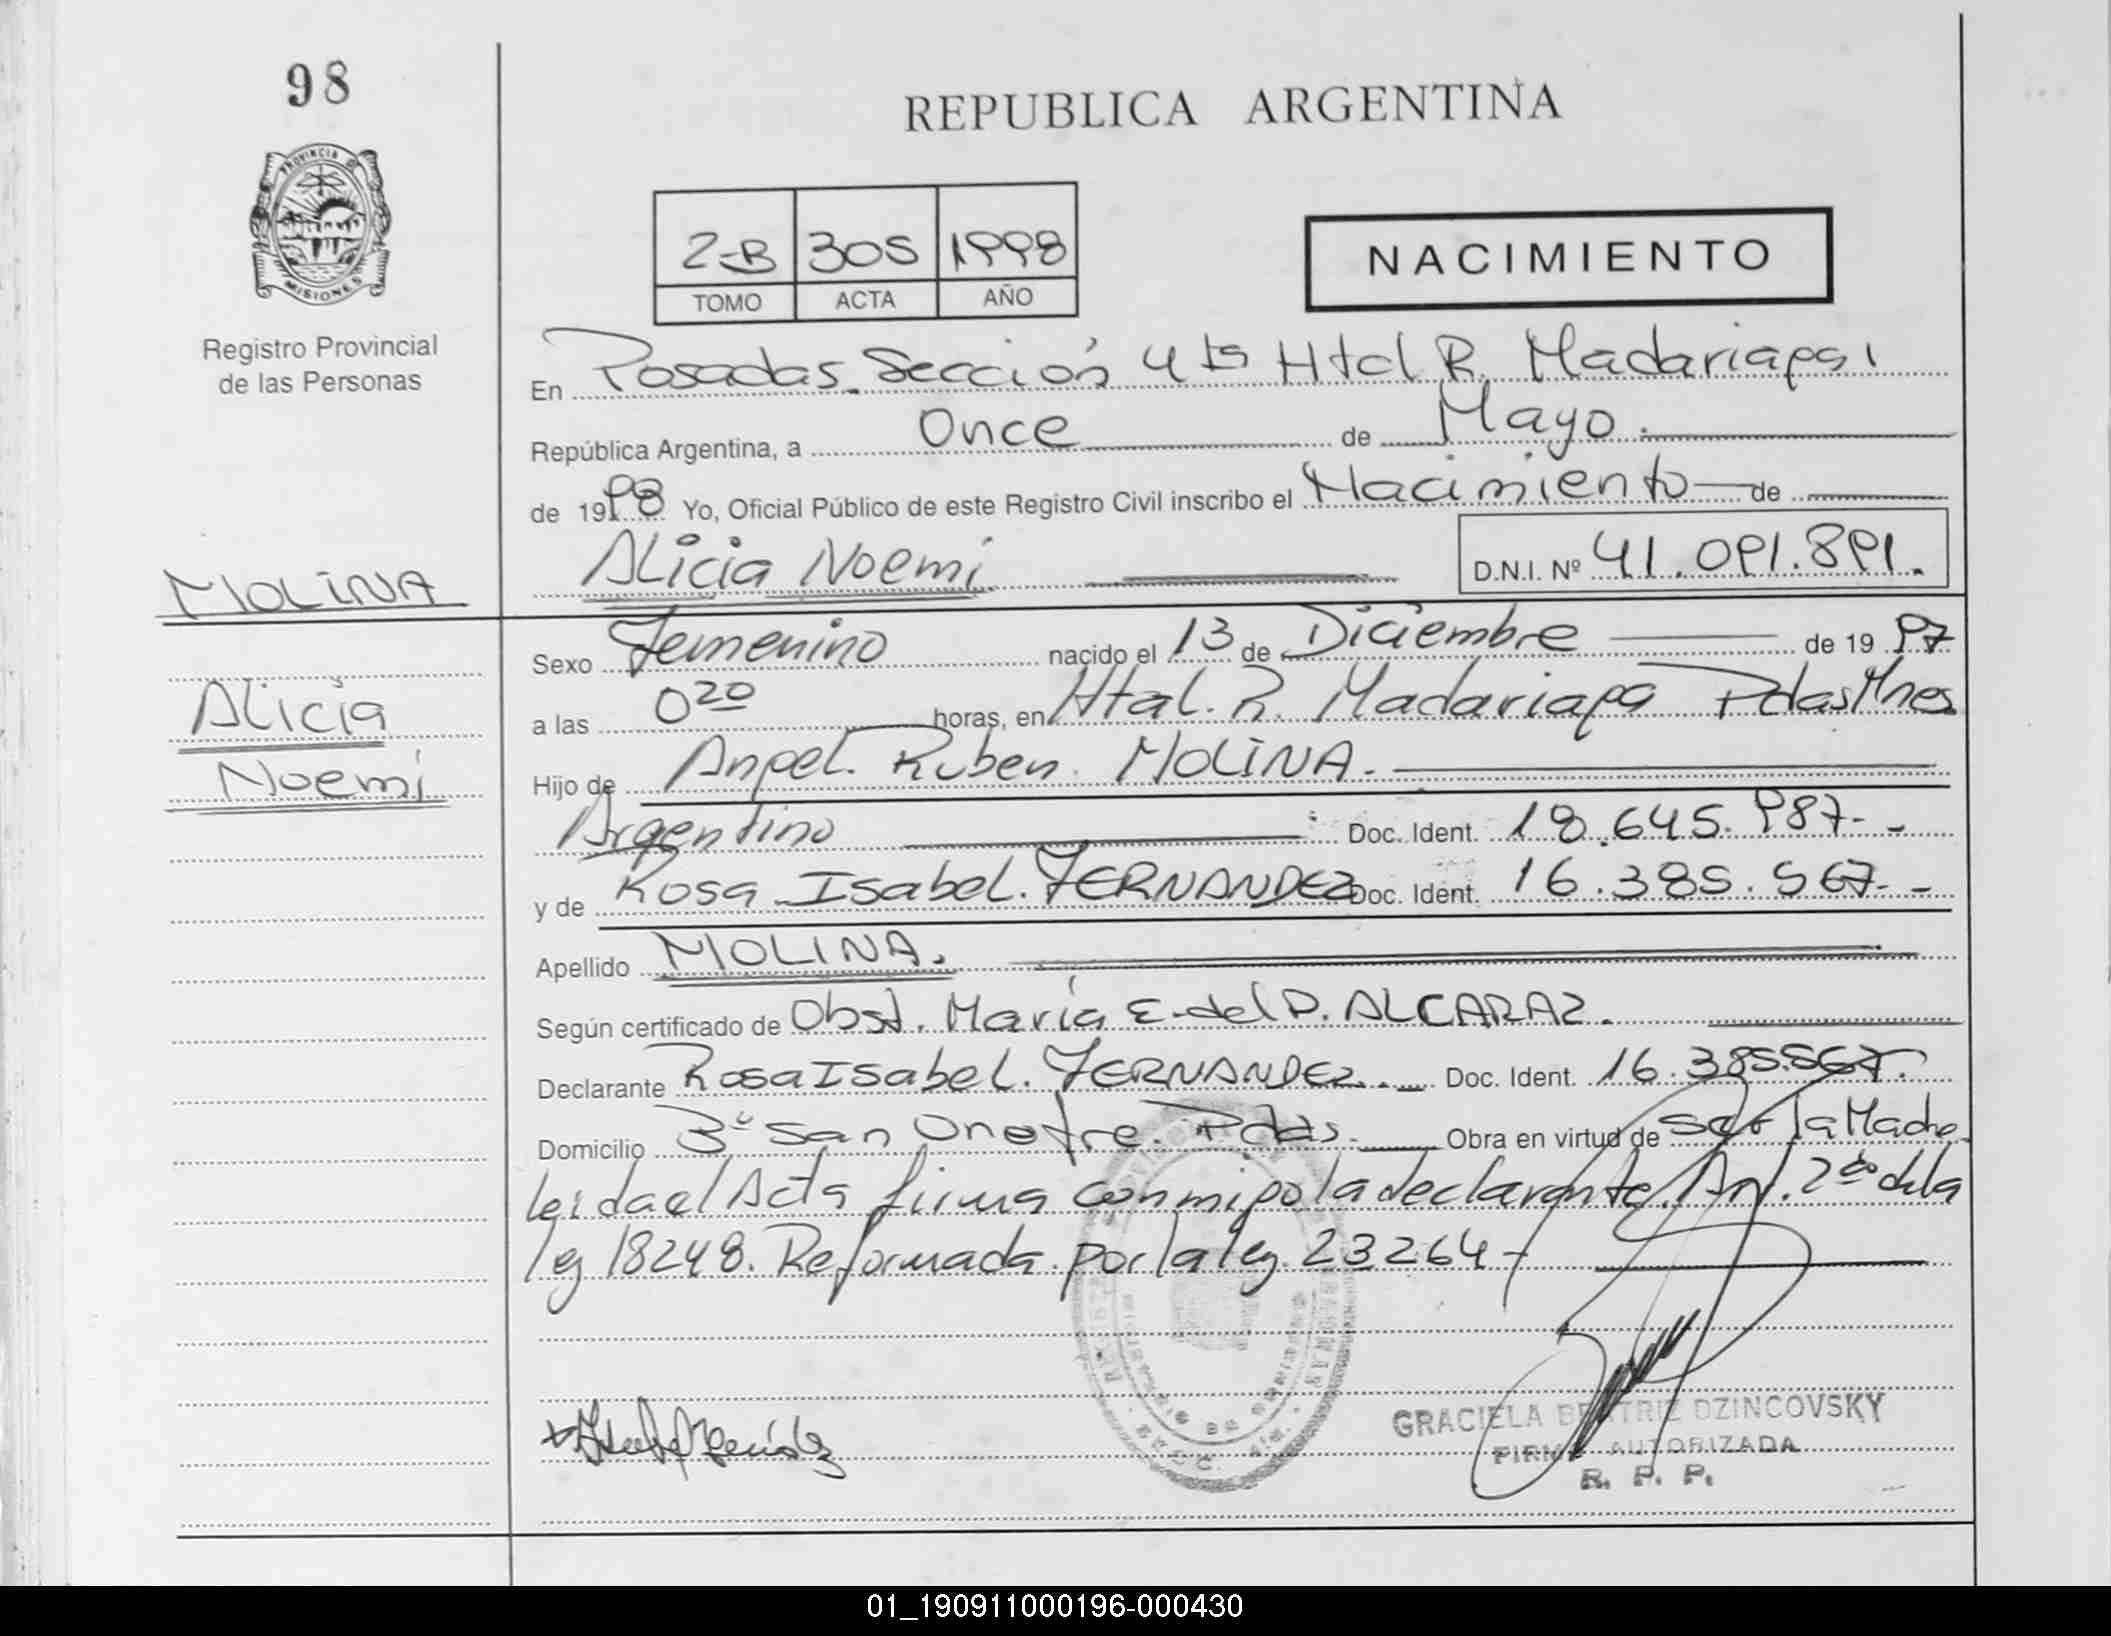 98
REPUBLICA ARGENTINA
PROVINCIA DE
MISIONES
2-B 305 1998
TOMO ACTA AÑO
NACIMIENTO
Registro Provincial
de las Personas
En Posadas. Sección 4ta Htal R. Madariaga,
República Argentina, a Once de Mayo.
de 1998 Yo, Oficial Público de este Registro Civil inscribo el Nacimiento de
Alicia Noemí D.N.I. Nº 41.091.891.
MOLINA
Alicia
Noemí
Sexo Femenino nacido el 13 de Diciembre de 19 97
a las 0 20 horas, en Htal. R. Madariaga Pdas Mnes
Hijo de Angel. Ruben. MOLINA.
Argentino Doc. Ident. 18.645.987.-
y de Rosa Isabel. FERNANDEZ Doc. Ident. 16.385.567.-
Apellido MOLINA.
Según certificado de Obst. María E. del P. ALCARAZ.
Declarante Rosa Isabel. FERNANDEZ. Doc. Ident. 16.385.567.
Domicilio Bº San Onofre. Pdas. Obra en virtud de ser la Madre.
leida el Acta firma conmigo la declarante. Art. 2do de la
ley 18248. Reformada por la ley 23264-
GRACIELA BEATRIZ DZINCOVSKY
FIRMA AUTORIZADA
R. P. P.
01_190911000196-000430